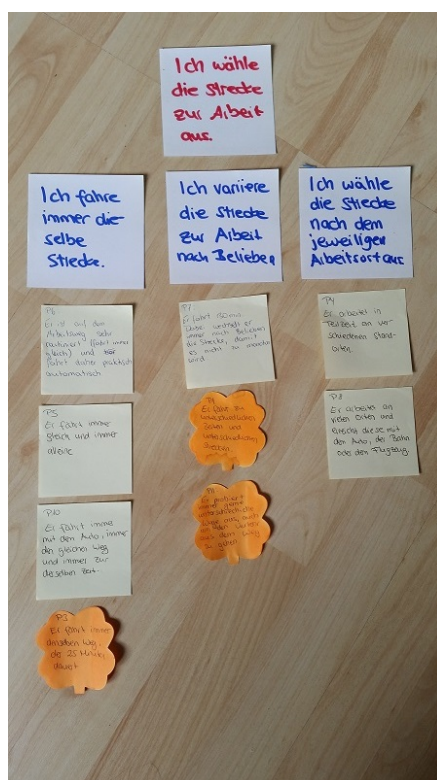 Ich wähle
die Strecke
zur Arbeit
aus.
Ich fahre
immer die
selbe
Strecke.
Ich variiere
die Strecke
zur Arbeit
nach Belieben
Ich wähle
die Strecke
nach dem
jeweiligen
Arbeitsort aus
P6
Er ist auf dem
Arbeitsweg sehr
(fährt immer
gleich) und
fährt daher praktisch
automatisch
P5
Er fährt immer
gleich und immer
alleine
P10
Er fährt immer
mit dem Auto, immer
den gleichen Weg
und immer zur
dieselben Zeit.
P3
Er fährt immer
denselben Weg,
der 25 Minuten
dauert
P7
Er fährt 150 min.
immer nach Belieben
die Strecke, damit
es nicht zu
wird
Er fährt zu
unterschiedlichen
Zeiten und
unterschiedliche
Strecken
P4
Er arbeitet in
Teilzeit an ver-
schiedenen Stand-
orten.
P8
Er arbeitet an
vielen Orten und
erreicht diese mit
dem Auto, der Bahn
oder dem Flugzeug.